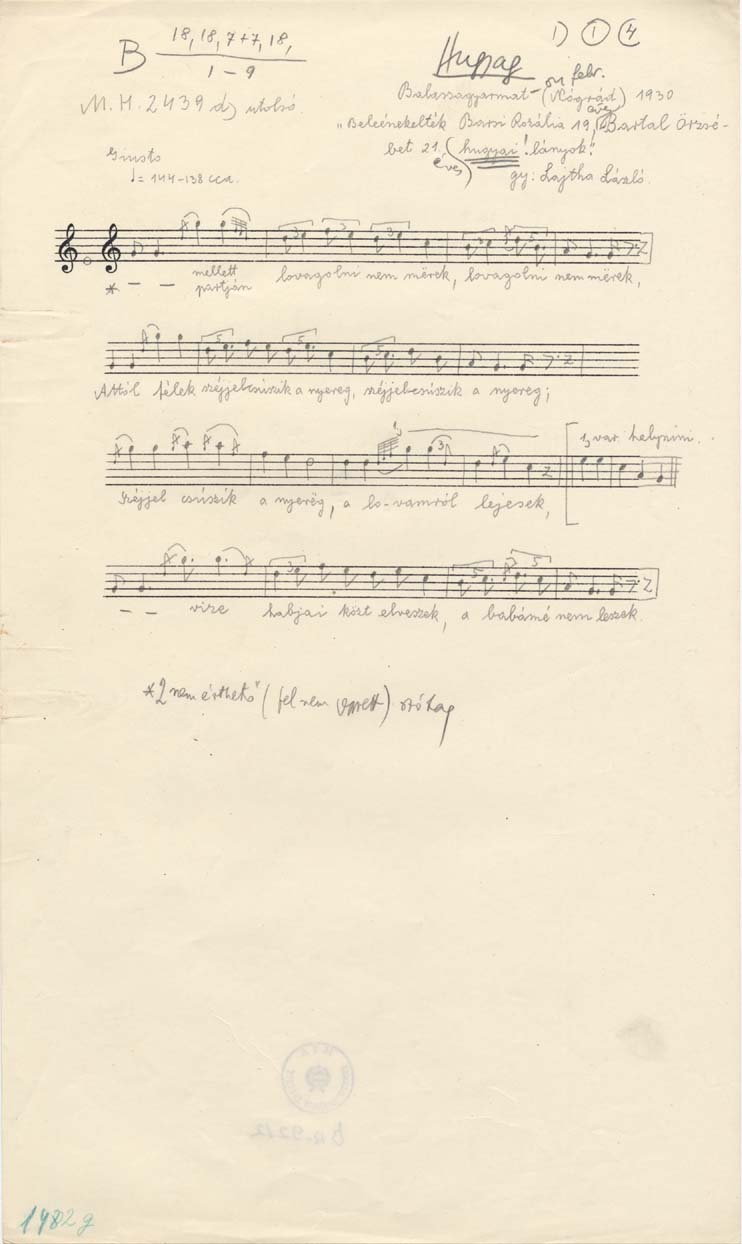 B 18, 18, 7+7, 18,
1 – 9
1) 1 4
Hugyag
M. H. 2439 d) utolsó
Balassagyarmat – (Nógrád) 1930 febr.
"Beleénekelték Barsi Rozália 19 éves, Bartal Örzsé-
bet 21. éves hugyai! lányok."
gy: Lajtha László.
Giusto
♩= 144–138 cca.
* – – mellett lovagolni nem mërek, lovagolni nem mërek,
partján
Attól félek széjjelcsúszik a nyereg, széjjelcsúszik a nyereg;
1, var. helyszíni.
Széjjel csúszik a nyerëg, a lo-vamról lejesek,
– – vize habjai közt elveszek, a babámé nem leszek.
* 2 nem érthető (fel nem vett) szótag
1482 g